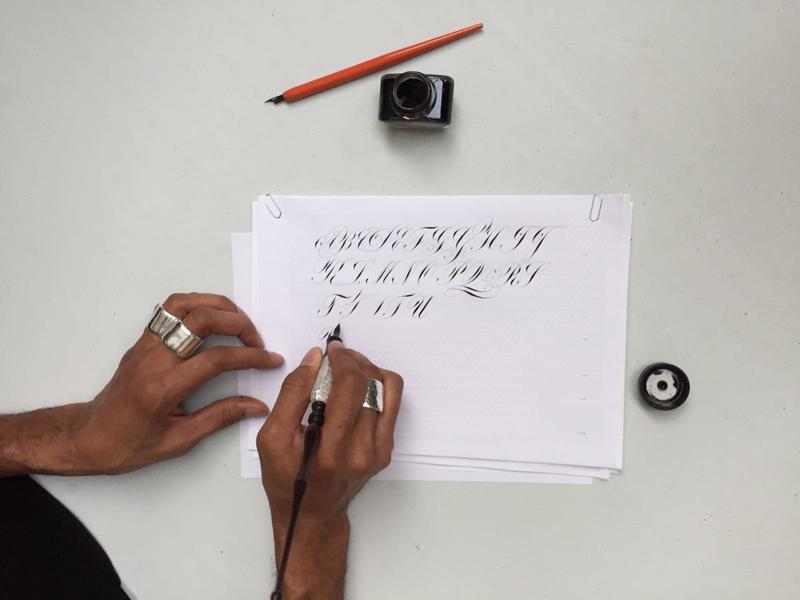 A B C D E F G G H I J
K L M N O P Q R S
T T I T U